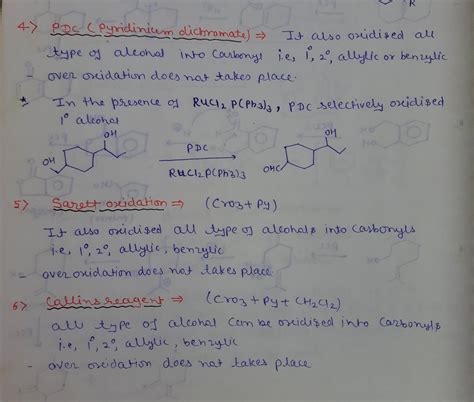 4) PDC (Pyridinium dichromate) ⇒ It also oxidised all
type of alcohol into Carbonyl i.e, 1°, 2°, allylic or benzylic
- over oxidation does not takes place.
* In the presence of RUCl2 P(Ph3)3, PDC selectively oxidised
1° alcohol
OH
OH
PDC
OH
RUCl2P(Ph3)3
OHC
5) Sarett oxidation ⇒ (CrO3 + Py)
It also oxidised all type of alcohols into Carbonyls
i.e, 1°, 2°, allylic, benzylic
- over oxidation does not takes place
6) Collins reagent ⇒ (CrO3 + Py + CH2Cl2)
all type of alcohol can be oxidised into Carbonyls
i.e, 1°, 2°, allylic, benzylic
- over oxidation does not takes place